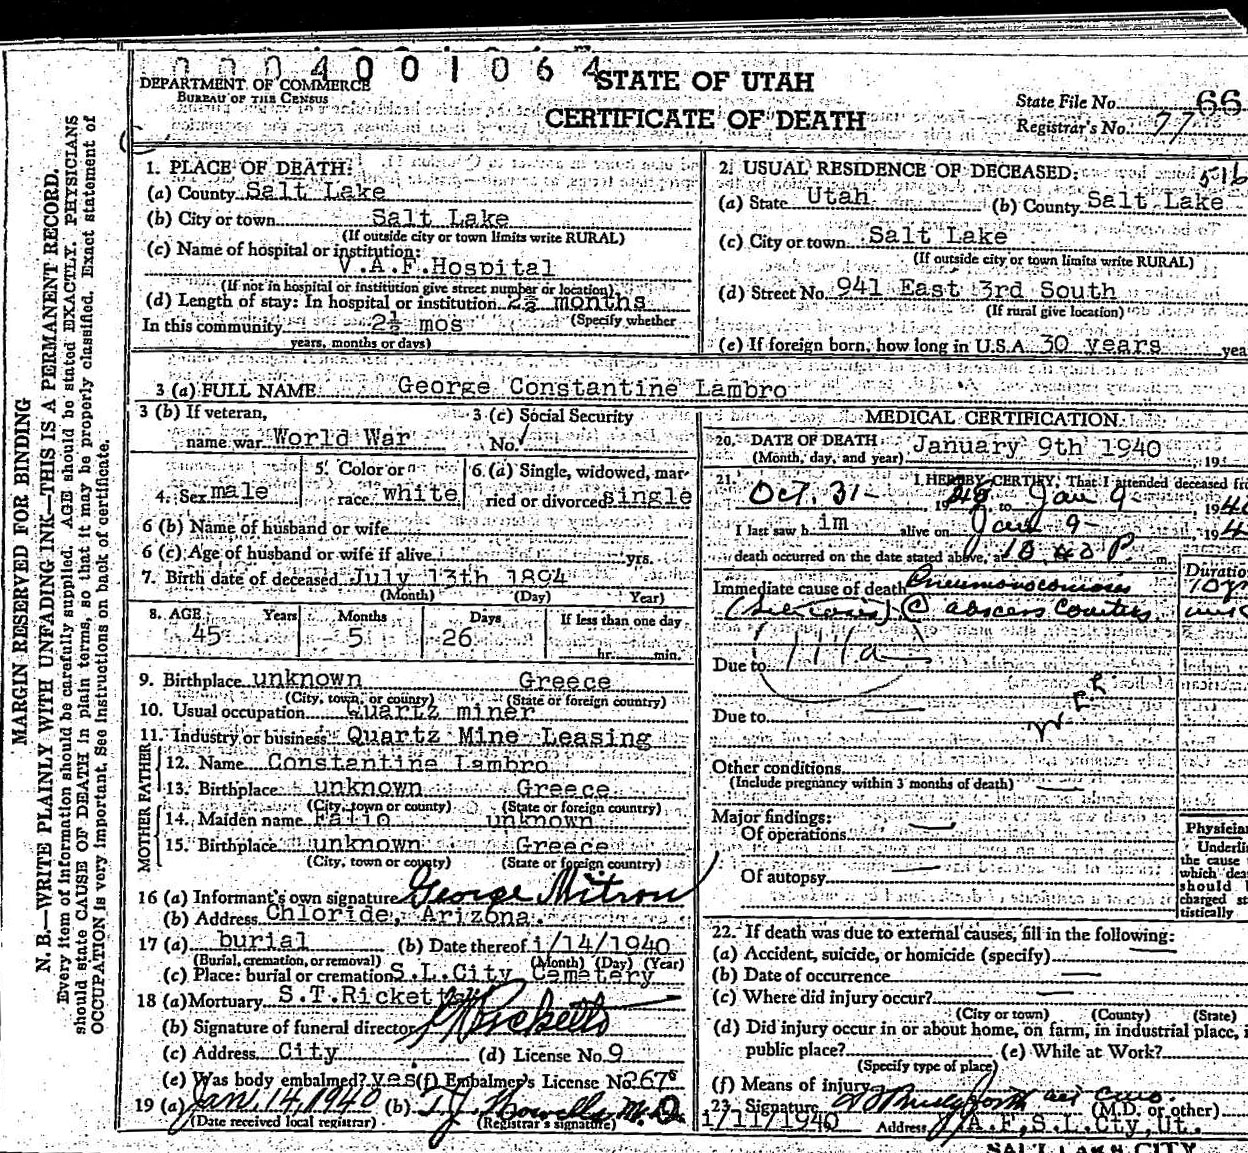 0004001064
DEPARTMENT OF COMMERCE
BUREAU OF THE CENSUS
STATE OF UTAH
CERTIFICATE OF DEATH
State File No. 66
Registrar's No. 77
MARGIN RESERVED FOR BINDING
N. B.—WRITE PLAINLY WITH UNFADING INK—THIS IS A PERMANENT RECORD.
Every item of information should be carefully supplied. AGE should be stated EXACTLY. PHYSICIANS
should state CAUSE OF DEATH in plain terms, so that it may be properly classified. Exact statement of
OCCUPATION is very important. See instructions on back of certificate.
1. PLACE OF DEATH:
(a) County Salt Lake
(b) City or town Salt Lake
(If outside city or town limits write RURAL)
(c) Name of hospital or institution:
V.A.F.Hospital
(If not in hospital or institution give street number or location)
(d) Length of stay: In hospital or institution 2½ months
(Specify whether
In this community 2½ mos
years, months or days)
2. USUAL RESIDENCE OF DECEASED: 516
(a) State Utah (b) County Salt Lake
(c) City or town Salt Lake
(If outside city or town limits write RURAL)
(d) Street No. 941 East 3rd South
(If rural give location)
(e) If foreign born, how long in U.S.A. 30 years yea
3 (a) FULL NAME George Constantine Lambro
3 (b) If veteran,
name war World War
3 (c) Social Security
No.
4. Sex male
5. Color or
race white
6. (a) Single, widowed, mar-
ried or divorced single
6 (b) Name of husband or wife
6 (c) Age of husband or wife if alive yrs.
7. Birth date of deceased July 13th 1894
(Month) (Day) Year)
8. AGE Years Months Days If less than one day
45 5 26
hr. min.
9. Birthplace unknown Greece
(City, town, or county) (State or foreign country)
10. Usual occupation Quartz miner
11. Industry or business Quartz Mine Leasing
FATHER
12. Name Constantine Lambro
13. Birthplace unknown Greece
(City, town or county) (State or foreign country)
MOTHER
14. Maiden name Falio unknown
15. Birthplace unknown Greece
(City, town or county) (State or foreign country)
16 (a) Informant's own signature George Mitron
(b) Address Chloride, Arizona.
17 (a) burial (b) Date thereof 1/14/1940
(Burial, cremation, or removal) (Month) (Day) (Year)
(c) Place: burial or cremation S.L.City Cemetery
18 (a) Mortuary S.T.Ricketts
(b) Signature of funeral director Ricketts
(c) Address City (d) License No. 9
(e) Was body embalmed? yes (f) Embalmer's License No. 267
19 (a) Jan. 14, 1940 (b) T.J. Howells M.D.
(Date received local registrar) (Registrar's signature)
MEDICAL CERTIFICATION
20. DATE OF DEATH January 9th 1940
(Month, day, and year) 19
21. I HEREBY CERTIFY, That I attended deceased fro
Oct. 31- 19 to Jan 9- , 19
I last saw h im alive on Jan 9- , 19
death occurred on the date stated above, at 10 40 P m
Duratio
Immediate cause of death Pneumonoconiosis 10 yr
(Silicosis)
Due to 114a
Due to
Other conditions
(Include pregnancy within 3 months of death)
Major findings:
Of operations
Of autopsy
Physician
Underlin
the cause
which deat
should b
charged st
tistically
22. If death was due to external causes, fill in the following:
(a) Accident, suicide, or homicide (specify)
(b) Date of occurrence
(c) Where did injury occur?
(City or town) (County) (State)
(d) Did injury occur in or about home, on farm, in industrial place, i
public place? (e) While at Work?
(Specify type of place)
(f) Means of injury
23. Signature (M.D. or other)
1/11/1940 Address V.A.F.,S.L.Cty,Ut.
SALT LAKE CITY